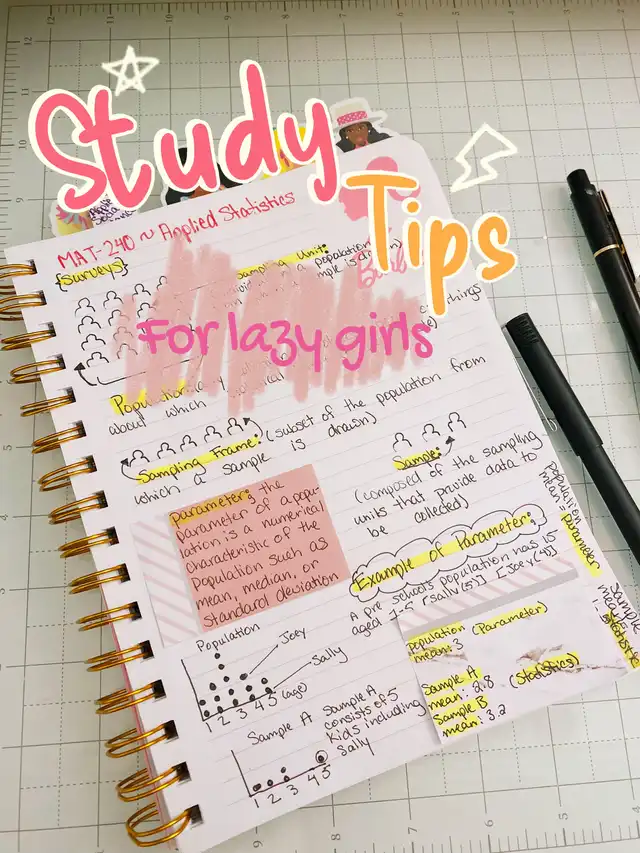 Study
Tips
For lazy girls
MAT-240 ~ Applied Statistics
{Surveys}
Sampling Unit:
population
is drawn)
things
Population:
about which
Sampling Frame: (subset of the population from
which a sample is drawn)
Sample:
(composed of the sampling
units that provide data to
be collected)
parameter: the
parameter of a popu-
lation is a numerical
characteristic of the
population such as
mean, median, or
standard deviation
Example of Parameter:
A pre schools population has 15
aged 1-5 [Sally(5)] [Joey(4)]
Population
Joey
Sally
(age)
1 2 3 4 5
Sample A
Sample A
consists of 5
kids including
Sally
1 2 3 4 5
population (Parameter)
mean: 3
Sample A (Statistics)
mean: 2.8
Sample B
mean: 3.2
population parameter
mean =
Sample
mean =